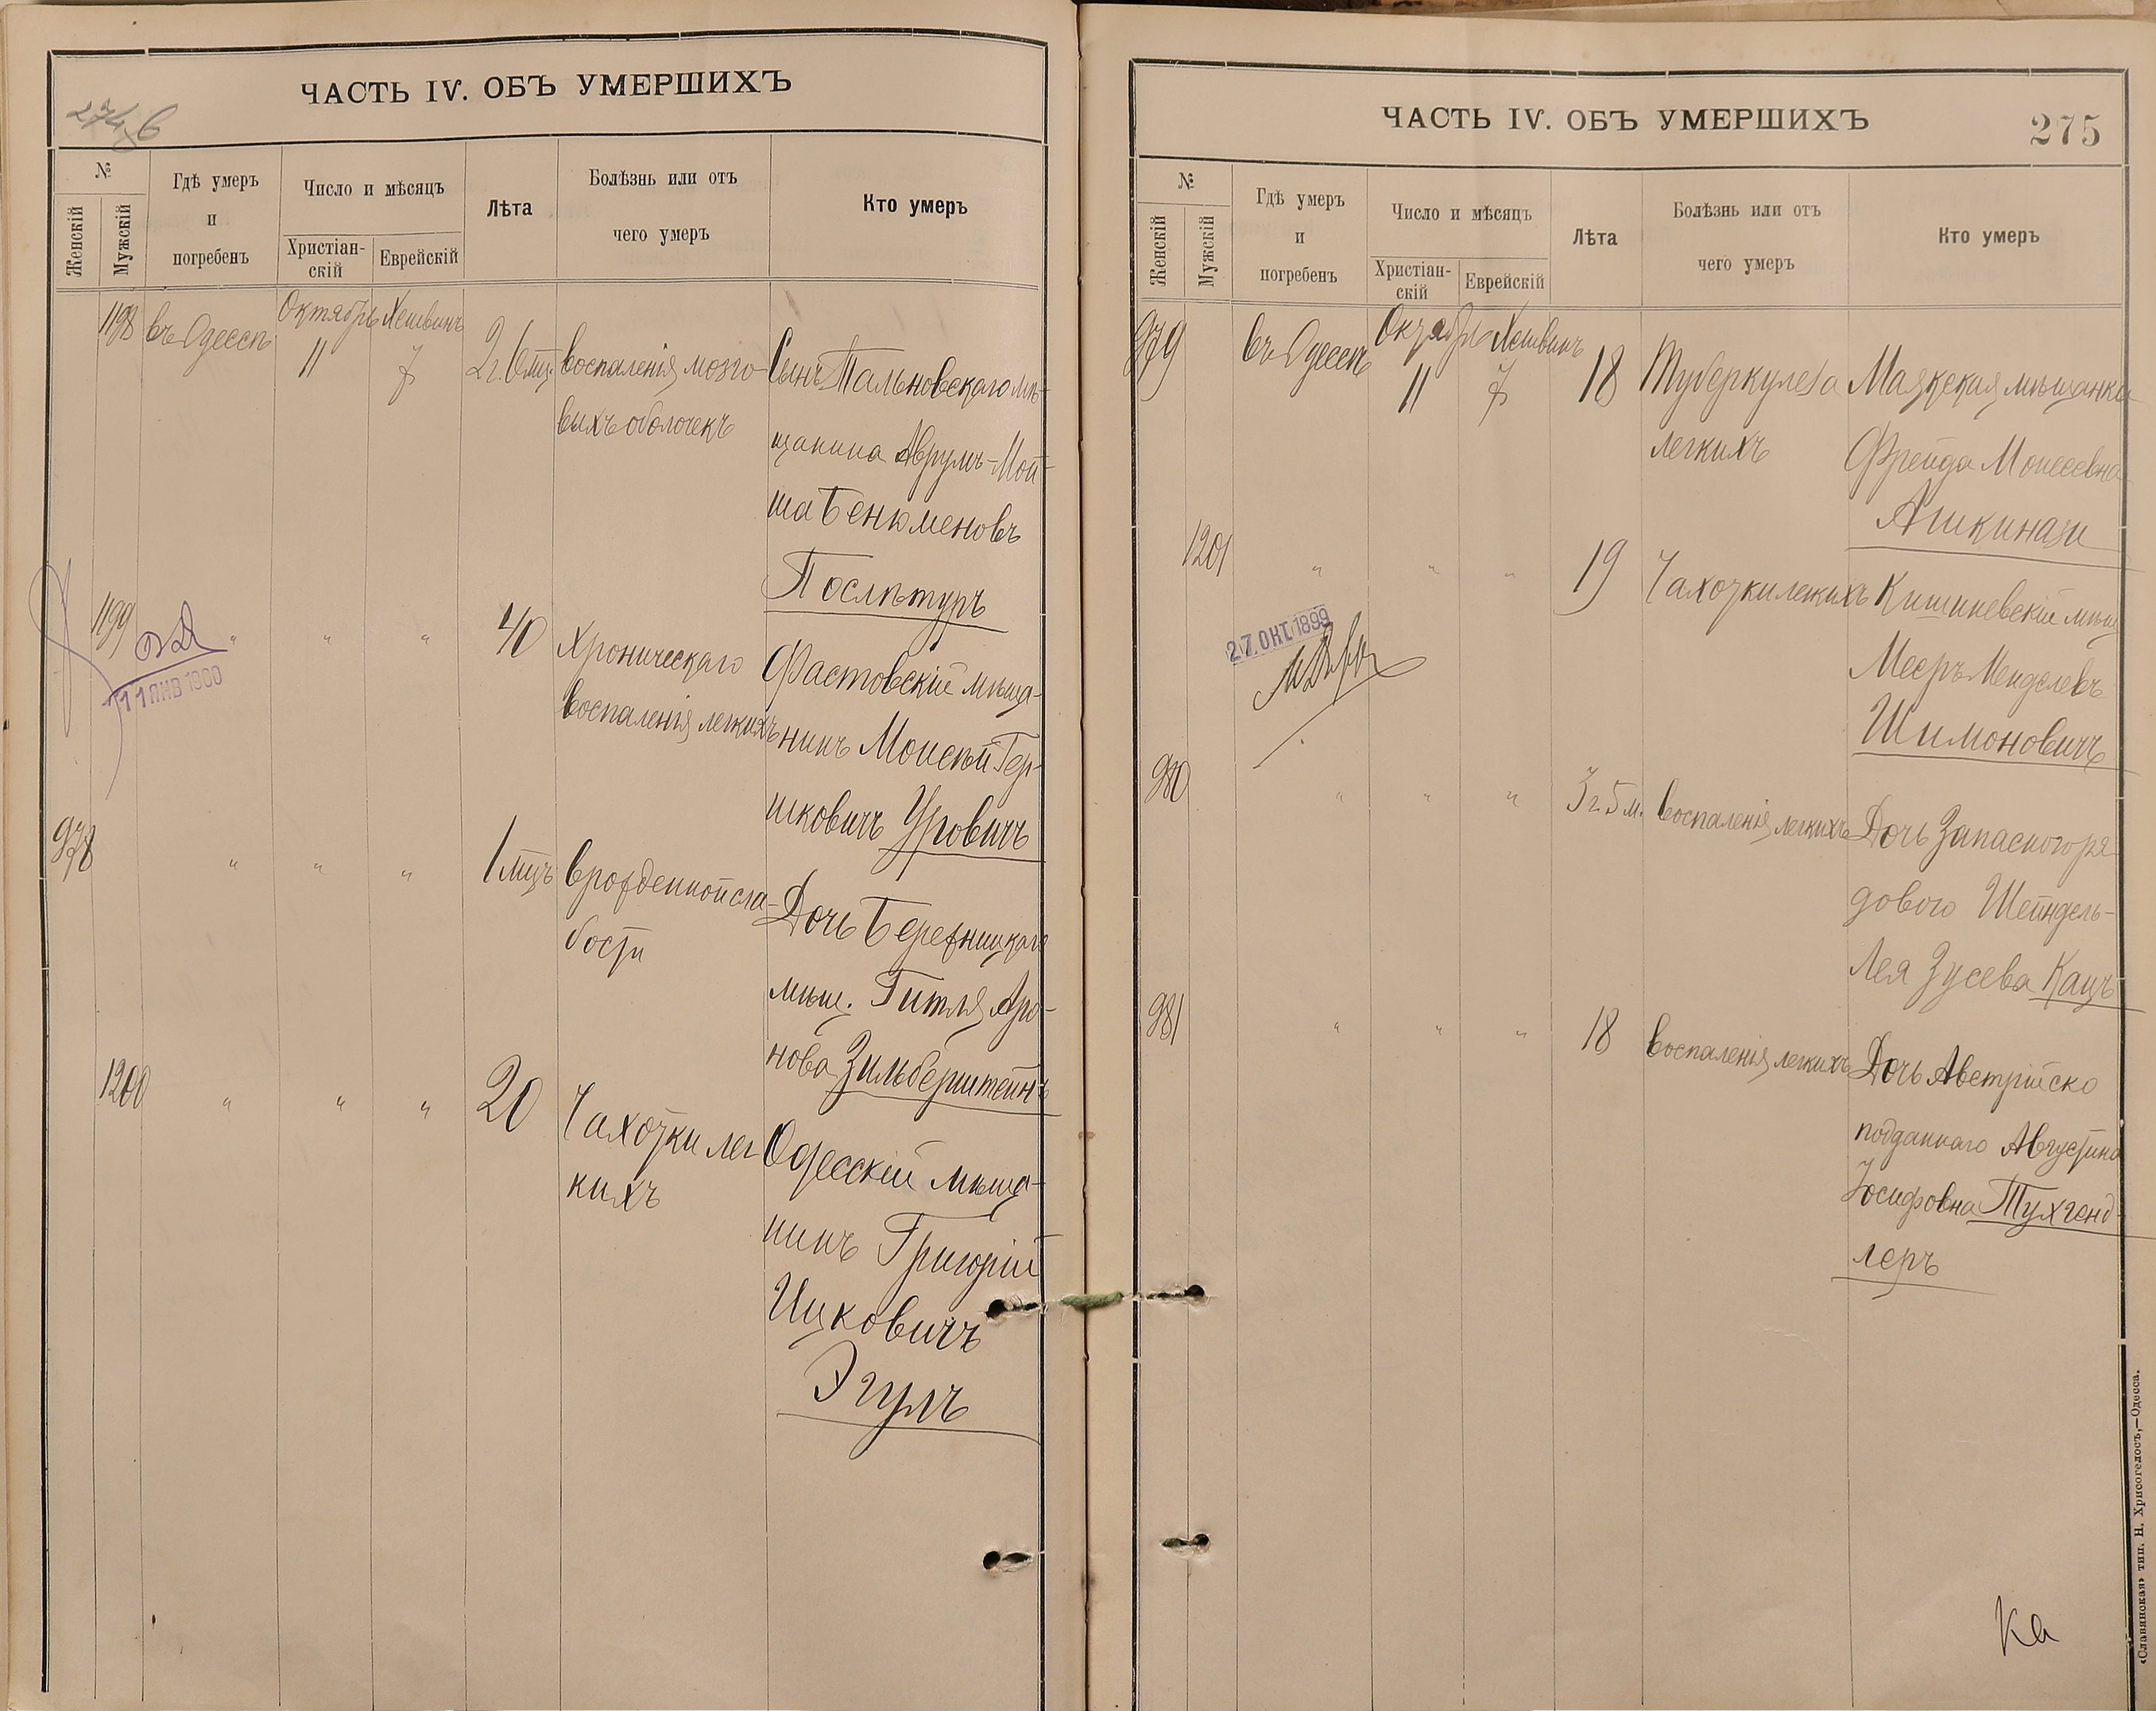 ЧАСТЬ IV. ОБЪ УМЕРШИХЪ
№
Женскій
Мужскій
Гдѣ умеръ
и
погребенъ
Число и мѣсяцъ
Христіан-
скій
Еврейскій
Лѣта
Болѣзнь или отъ
чего умеръ
Кто умеръ
1198 въ Одессѣ Октябрь Хешвинъ
11 7 2 г. 6 мц. воспаленія мозго- Сынъ Тальновскаго мѣ-
выхъ оболочекъ щанина Аврумъ-Мой-
ша Бенюменовъ
Послѣтуръ
1199 " " " 40 Хроническаго Фастовскій мѣща-
11 ЯНВ 1900
воспаленія легкихъ нинъ Моисей Гер-
шковичъ Уровичъ
978 " " " 1 мцъ врожденной сла- Дочь Бережницкаго
бости мѣщ. Гитля Аро-
нова Зильберштейнъ
1200 " " " 20 Чахотки лег- Одесскій мѣща-
кихъ нинъ Григорій
Ицковичъ
Эгулъ
ЧАСТЬ IV. ОБЪ УМЕРШИХЪ
275
№
Женскій
Мужскій
Гдѣ умеръ
и
погребенъ
Число и мѣсяцъ
Христіан-
скій
Еврейскій
Лѣта
Болѣзнь или отъ
чего умеръ
Кто умеръ
979 въ Одессѣ Октябрь Хешвинъ
11 7 18 Туберкулеза Маякская мѣщанка
легкихъ Фрейда Моисеевна
Ашкинази
1201 " " " 19 Чахотки легкихъ Кишиневскій мѣщ
27 ОКТ 1899
Мееръ Менделевъ
Шимоновичъ
980 " " " 3 г. 5 м. воспаленія легкихъ Дочь Запасного ря
дового Шейндель-
Лея Зусева Кацъ
981 " " " 18 воспаленія легкихъ Дочь Австрійско
подданнаго Августина
Іосифовна Тухенд-
леръ
Ка
«Славянская» тип. Н. Хрисогелосъ,—Одесса.